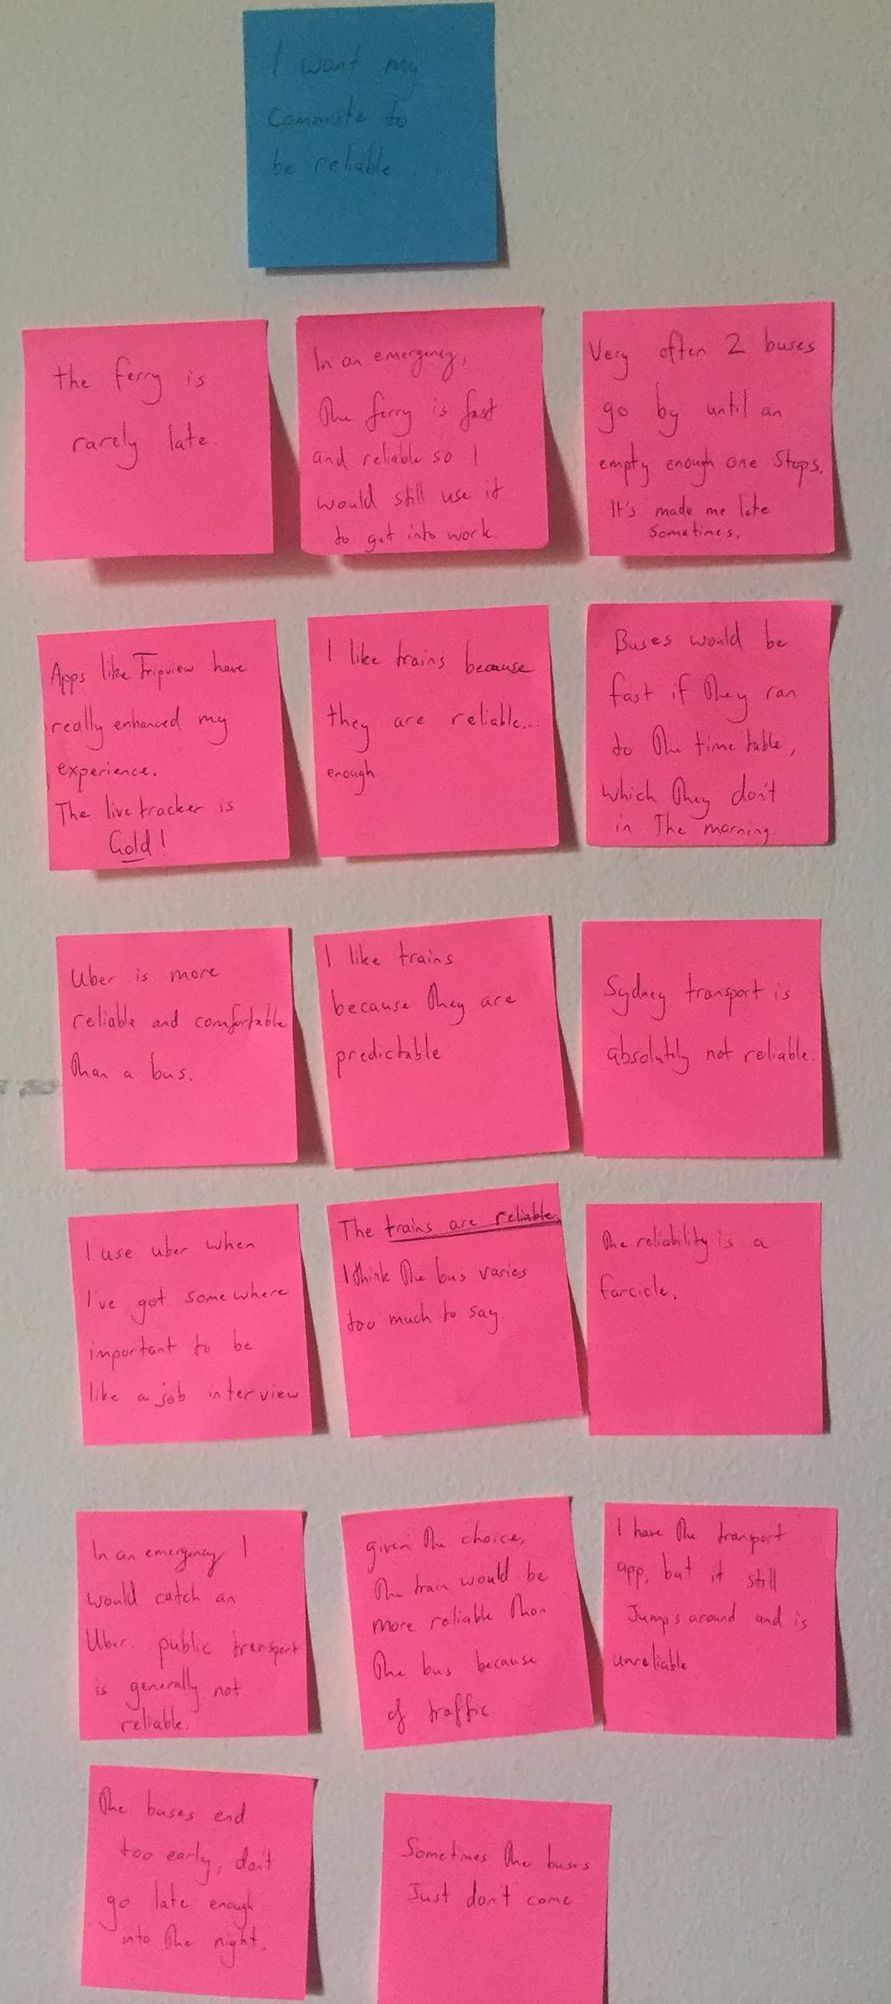 I want my
commute to
be reliable
the ferry is
rarely late.
In an emergency,
The ferry is fast
and reliable so I
would still use it
to get into work.
Very often 2 buses
go by until an
empty enough one stops.
It's made me late
sometimes.
Apps like Tripview have
really enhanced my
experience.
The live tracker is
Gold!
I like trains because
they are reliable...
enough
Buses would be
fast if They ran
to The time table,
which They don't
in The morning
Uber is more
reliable and comfortable
Than a bus.
I like trains
because They are
predictable
Sydney transport is
absolutly not reliable.
I use uber when
I've got somewhere
important to be
like a job interview
The trains are reliable,
I think The bus varies
too much to say.
The reliability is a
farcicle.
In an emergency I
would catch an
Uber. public transport
is generally not
reliable.
given The choice,
The train would be
more reliable Than
The bus because
of traffic
I have The transport
app, but it still
Jumps around and is
unreliable
The buses end
too early, don't
go late enough
into The night.
Sometimes The buses
Just don't come